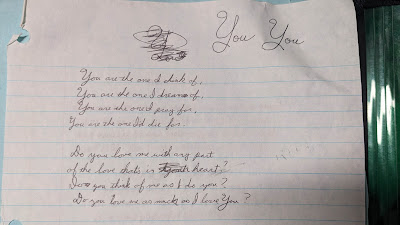 You You
You are the one I think of,
You are the one I dream of,
You are the one I pray for,
You are the one I'd die for
Do you love me with any part
of the love thats in heart?
Do you think of me as I do you?
Do you love me as much as I love You?